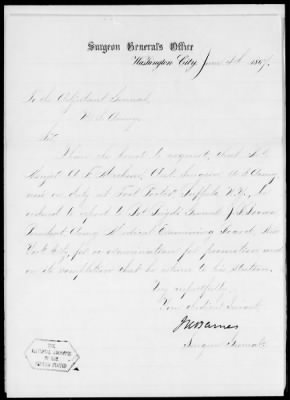 Surgeon General's Office
Washington City, June 4th 1867.
To the Adjutant General,
U. S. Army.
Sir,
I have the honor to request, that
Major A. F. Asst. Surgeon U. S. Army
now on duty at Fort Porter Buffalo N.Y., be
ordered to report to Brigd. General J. B. Brown
President Army Medical Examining Board, New
York City, for examination for promotion and
on its completion that he return to his station.
Very respectfully,
Your obedient servant,
J K Barnes
Surgeon General.
THE
NATIONAL ARCHIVES
OF THE
UNITED STATES